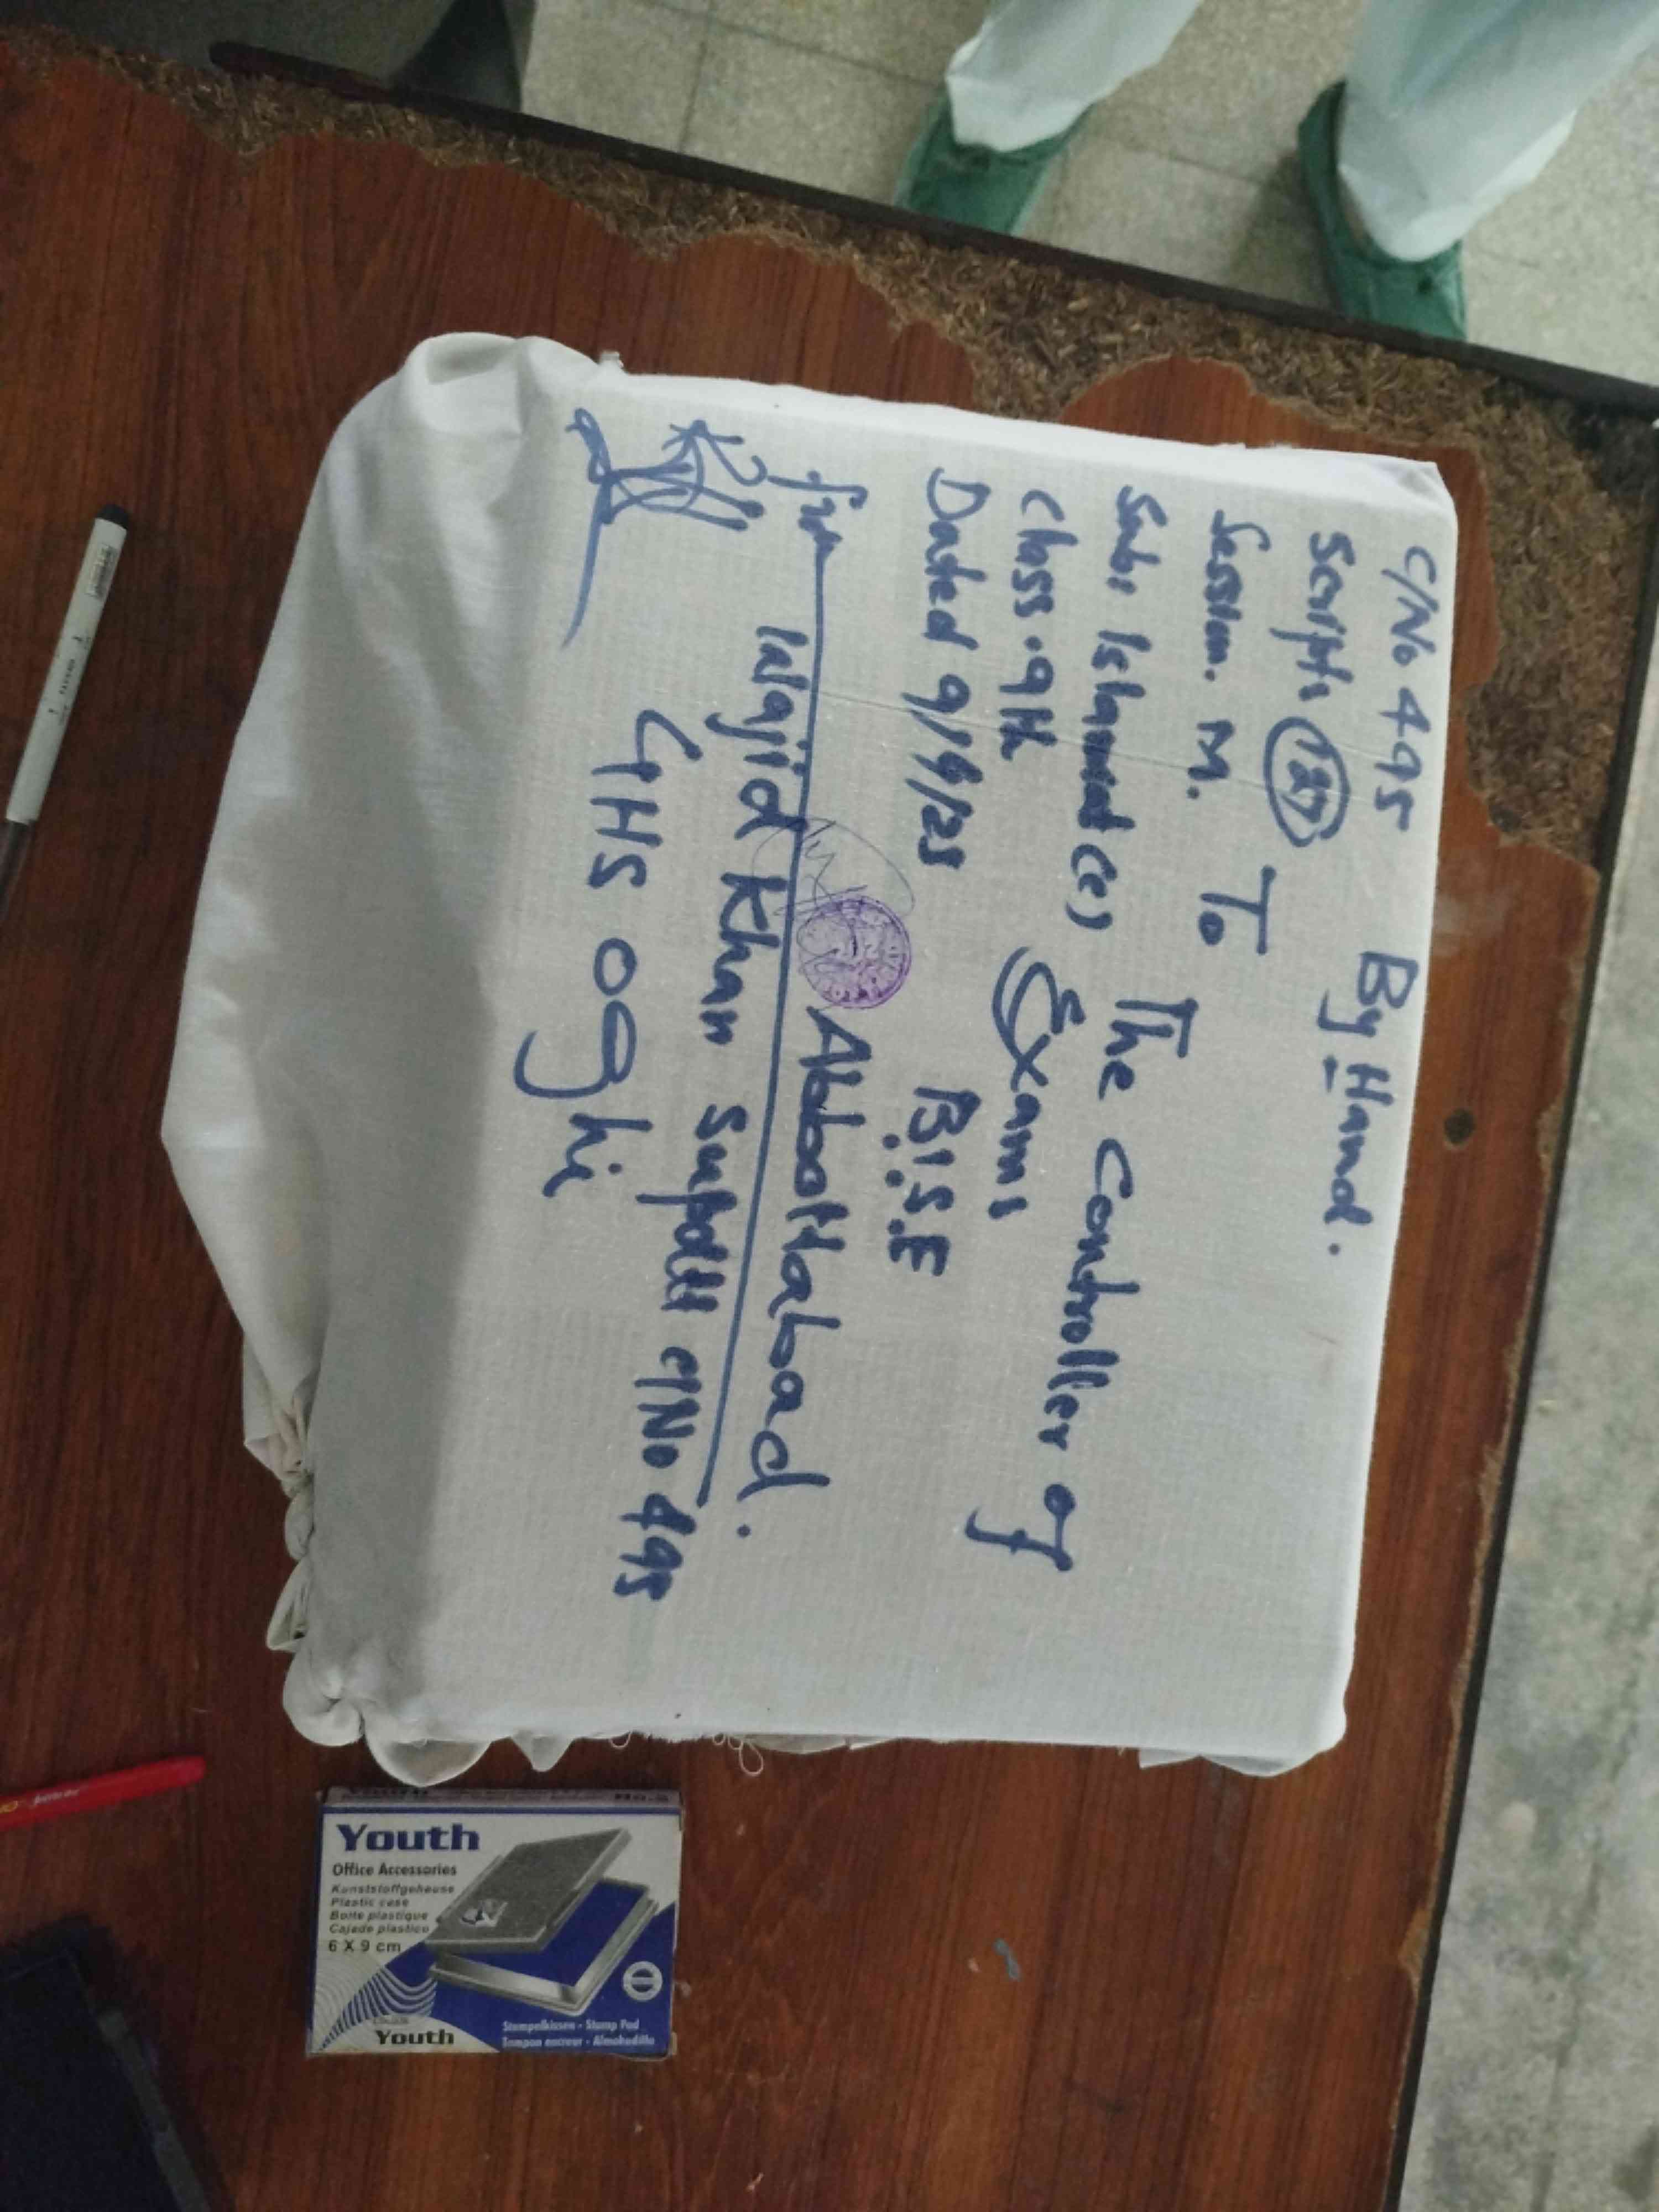 C/No 495
By Hand.
Scripts 127
Session. M.
To
Sub: Islamiat (C)
The Controller of
Class. 9th
Exams
Dated 9/4/25
B.I.S.E
Abbottabad.
from
Wajid Khan Supdtt C/No 495
GHS oghi
Youth
No.2
Youth
Office Accessories
Kunststoffgehause
Plastic case
Boite plastique
Cajade plastico
6 X 9 cm
Youth
Stempelkissen - Stamp Pad
Tampon encreur - Almohadilla